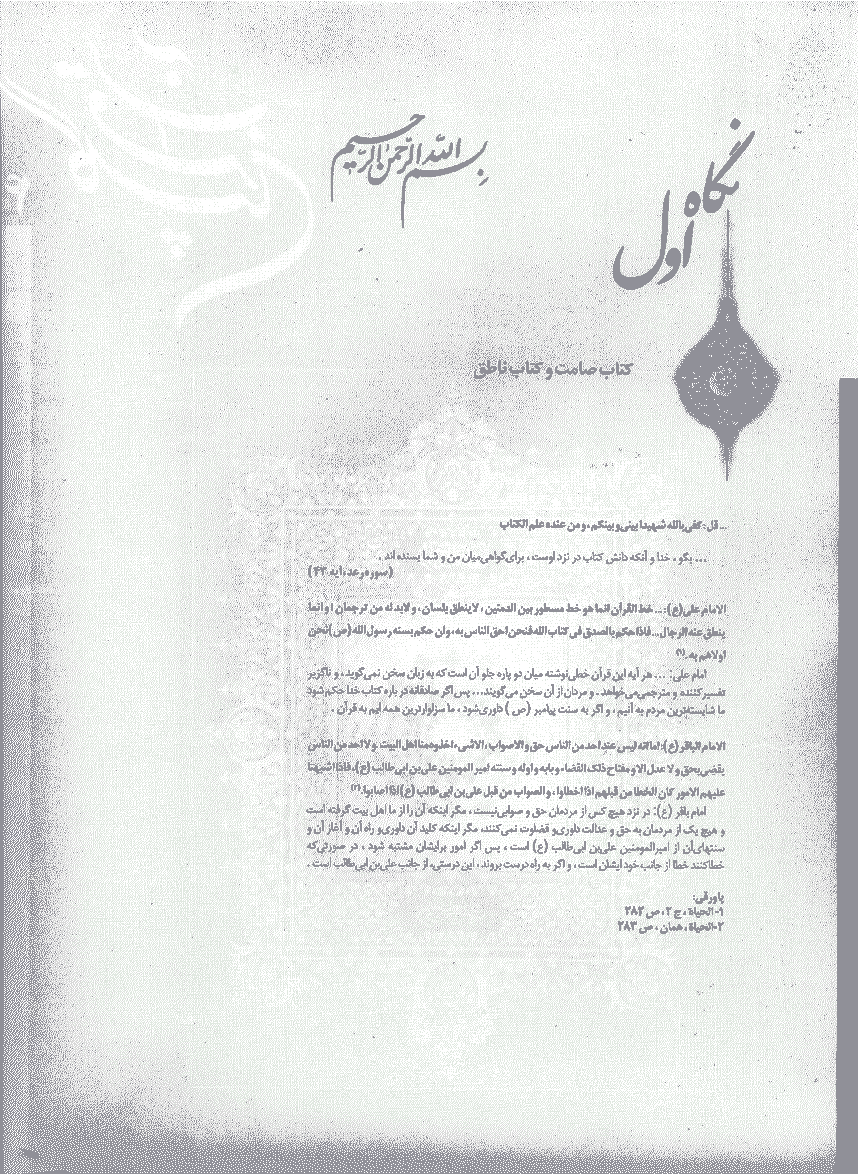 بسم الله الرحمن الرحیم
نگاه
اول
کتاب صامت و کتاب ناطق
... قل: کفی بالله شهیدا بینی و بینکم، و من عنده علم الکتاب
... بگو، خدا و آنکه دانش کتاب در نزد اوست، برای گواهی میان من و شما بسنده اند.
(سوره رعد، آیه ۴۳)
الامام علی (ع): ... خط القرآن انما هو خط مسطور بین الدفتین، لا ینطق بلسان، و لابد له من ترجمان! و انما
ینطق عنه الرجال... فاذا حکم بالصدق فی کتاب الله فنحن احق الناس به، وان حکم بسنه رسول الله (ص) نحن
اولاهم به. (۱)
امام علی: ... هر آیه این قرآن خطی نوشته میان دو پاره جلد آن است که به زبان سخن نمی‌گوید، و ناگزیر
تفسیرکننده و مترجمی می‌خواهد. و مردان از آن سخن می‌گویند... پس اگر صادقانه در باره کتاب خدا حکم شود
ما شایسته‌ترین مردم به آنیم، و اگر به سنت پیامبر (ص) داوری شود، ما سزاوارترین همه ایم به قرآن.
الامام الباقر (ع): اما انه لیس عند احد من الناس حق و لاصواب، الاشی، اخذوه منا اهل البیت. و لا احد من الناس
یقضی بحق و لا عدل الا و مفتاح ذلک القضاء و بابه و اوله و سننه امیر المومنین علی بن ابی طالب (ع)، فاذا اشتبهتا
علیهم الامور کان الخطا من قبلهم اذا اخطاوا، و الصواب من قبل علی بن ابی طالب (ع) اذا اصابوا. (۲)
امام باقر (ع): در نزد هیچ کس از مردمان حق و صوابی نیست، مگر اینکه آن را از ما اهل بیت گرفته است
و هیچ یک از مردمان به حق و عدالت داوری و قضاوت نمی‌کنند، مگر اینکه کلید آن داوری و راه آن و آغاز آن و
سنتهای آن از امیرالمومنین علی‌بن ابی‌طالب (ع) است، پس اگر امور برایشان مشتبه شود، در صورتی‌که
خطا کنند خطا از جانب خود ایشان است، و اگر به راه درست بروند، این درستی، از جانب علی‌بن ابی‌طالب است.
پاورقی:
۱- الحیاة، ج ۲، ص ۲۸۲
۲- الحیاة، همان، ص ۲۸۳